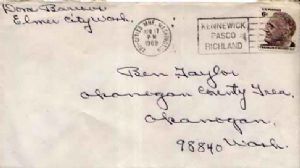 Dora Barrow
Elmer City Wash.
WASHINGTON
PM
1969
KENNEWICK
PASCO
RICHLAND
6c
Ben Taylor
Okanogan County Trea.
Okanogan,
98840 Wash.